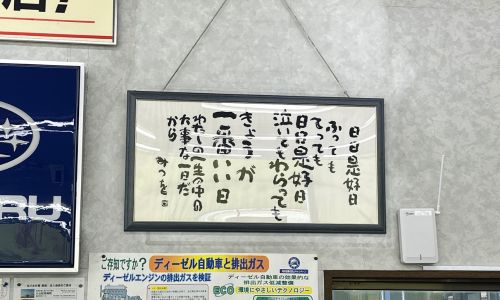 店!
日日是好日
ふっても
てっても
日日是好日
泣いてもわらっても
きょうが
一番いい日
わたしの一生の中の
大事な一日だ
から
みつを
RU
ご存知ですか?
ディーゼル自動車と排出ガス
ディーゼルエンジンの排出ガスを検証
ディーゼル自動車の効果的な
排出ガス低減整備
ECO 環境にやさしいテクノロジー